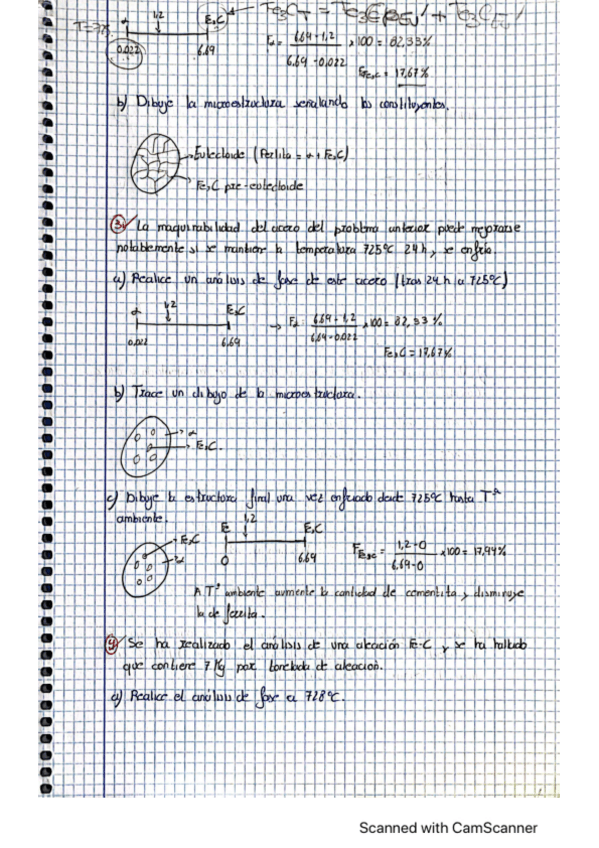 Fe3CT = Fe3CPROEU' + Fe3CEU'
α 1,2 Fe3C
0.022 6.69
Fα = 6.69-1,2 / 6.69-0,022 x100 = 82,33%
FFe3C = 17,67%
b) Dibuje la microestructura señalando los constituyentes.
Eutectoide (Perlita = α + Fe3C)
Fe3C pre-eutectoide
3. La maquinabilidad del acero del problema anterior puede mejorarse
notablemente si se mantiene la temperatura 725ºC 24h, y se enfría.
a) Realice un análisis de fase de este acero (tras 24h a 725ºC)
α 1,2 Fe3C
0.022 6.69
→ Fα = 6.69-1,2 / 6.69-0.022 x100 = 82,33%
Fe3C = 17,67%
b) Trace un dibujo de la microestructura.
α
Fe3C.
c) Dibuje la estructura final una vez enfriado desde 725ºC hasta Tª
ambiente.
Fe3C
α
1,2 Fe3C
0 6.69
FFe3C = 1,2-0 / 6.69-0 x100 = 17,94%
A Tª ambiente aumenta la cantidad de cementita y disminuye
la de ferrita.
4. Se ha realizado el análisis de una aleación Fe-C y se ha hallado
que contiene 7 Kg por tonelada de aleación.
a) Realice el análisis de fase a 728ºC.
Scanned with CamScanner